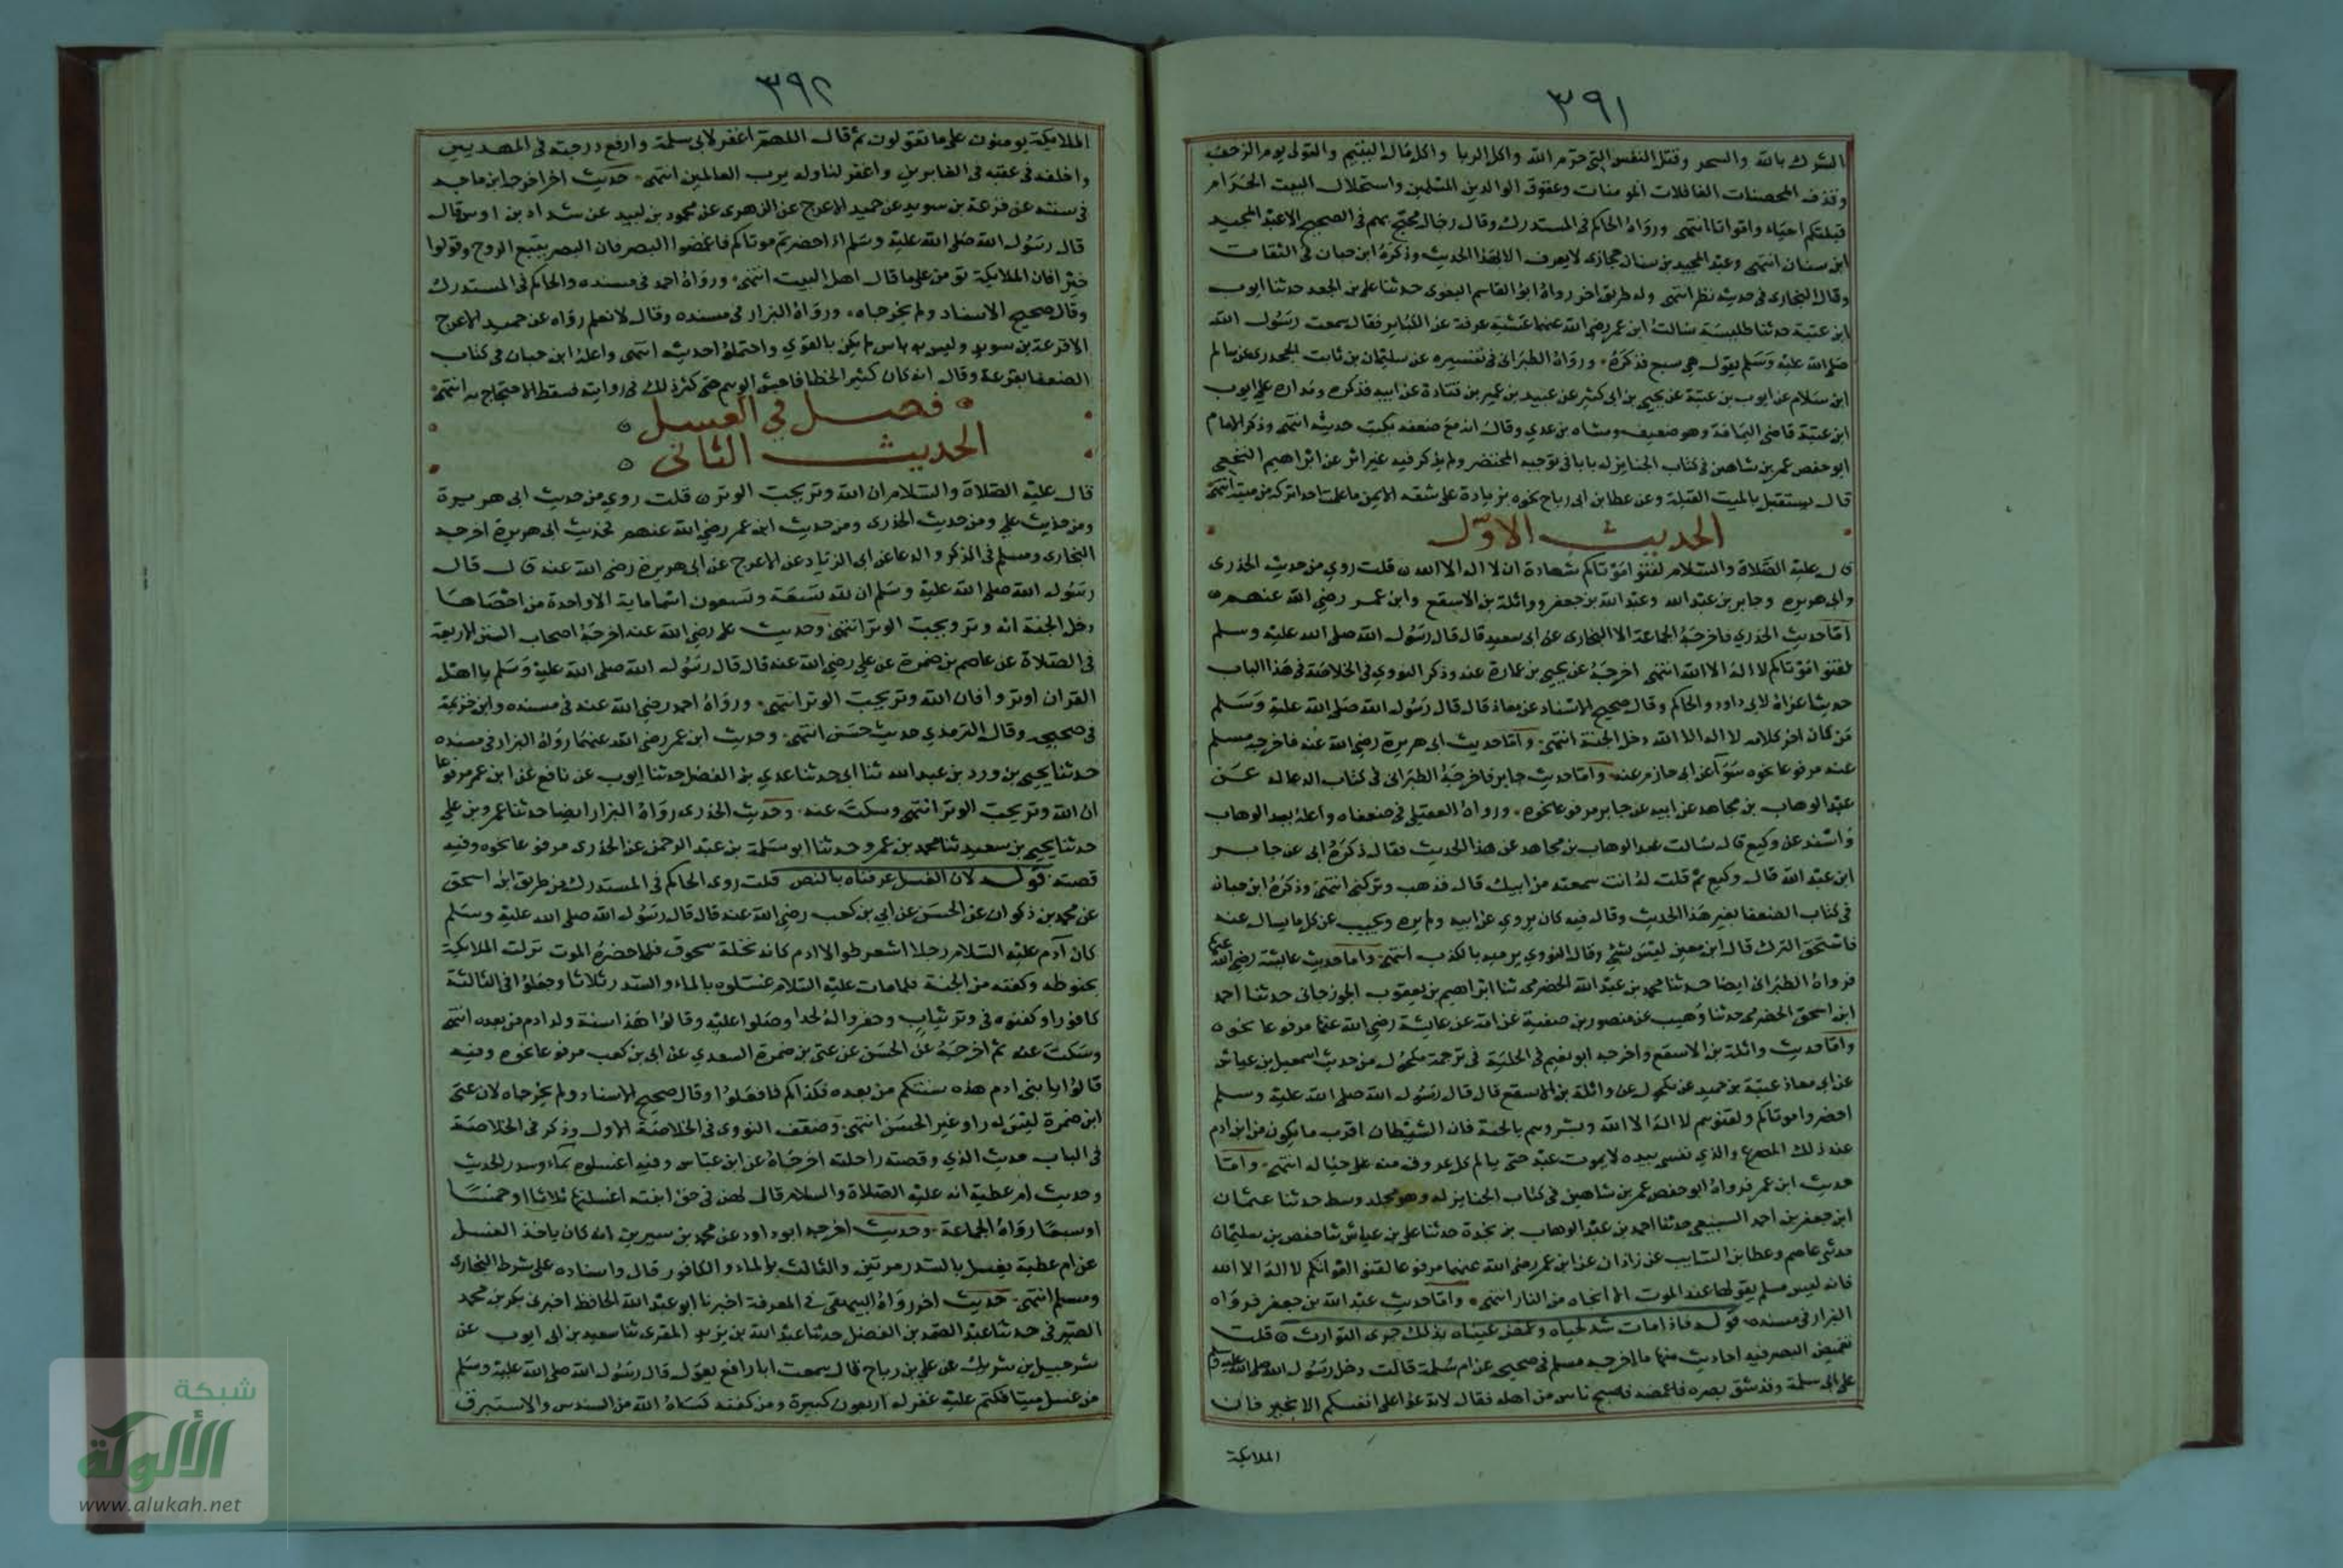 ٣٩١
الشرك بالله والسحر وقتل النفس التي حرم الله واكل الربا واكل مال اليتيم والتولى يوم الزحف
وقذف المحصنات الغافلات المومنات وعقوق الوالدين المسلمين واستحلال البيت الحرام
قبلتكم احياء وامواتا انتهى ورواه الحاكم فى المستدرك وقال رجاله محتج بهم فى الصحيح الا عبد الحميد
ابن سنان انتهى وعبد الحميد بن سنان حجازى لا يعرف الا بهذا الحديث وذكره ابن حبان فى الثقات
وقال البخارى فى حديثه نظر انتهى وله طريق اخر رواه ابو القاسم البغوى حدثنا على بن الجعد حدثنا ايوب
ابن عتبة حدثنا طيلسة سالت ابن عمر رضى الله عنهما عشية عرفة عن الكباير فقال سمعت رسول الله
صلى الله عليه وسلم يقول هى سبع فذكره ورواه الطبرانى فى تفسيره عن سليمان بن ثابت الجحدرى عن سالم
ابن سلام عن ايوب بن عتبة عن يحيى بن ابى كثير عن عبيد بن عمير بن قتادة عن ابيه فذكره ومداره على ايوب
ابن عتبة قاضى اليمامة وهو ضعيف ومشاه بن عدي وقال انه مع ضعفه يكتب حديثه انتهى وذكر الامام
ابو حفص عمر بن شاهين فى كتاب الجنايز له بابا فى توجيه المحتضر ولم يذكر فيه غير اثر عن ابراهيم النخعى
قال يستقبل بالميت القبلة وعن عطا بن ابى رباح نحوه بزيادة على شقه الايمن ما علمت احدا تركه من ميته انتهى
الحديث الاول
قال عليه الصلاة والسلام لقنوا موتاكم شهادة ان لا اله الا الله قلت روي من حديث الخدرى
وابى هريره وجابر بن عبد الله وعبد الله بن جعفر وواثلة بن الاسقع وابن عمر رضى الله عنهم
اما حديث الخدري فاخرجه الجماعة الا البخارى عن ابى سعيد قال قال رسول الله صلى الله عليه وسلم
لقنوا موتاكم لا اله الا الله انتهى اخرجه عن يحيى بن عمارة عنه وذكر النووي فى الخلاصة فى هذا الباب
حديثا عزاه لابى داود والحاكم وقال صحيح الاسناد عن معاذ قال قال رسول الله صلى الله عليه وسلم
من كان اخر كلامه لا اله الا الله دخل الجنة انتهى واما حديث ابى هريرة رضى الله عنه فاخرجه مسلم
عنه مرفوعا نحوه سوآ عن ابى حازم عنه واما حديث جابر فاخرجه الطبرانى فى كتاب الدعا له عن
عبد الوهاب بن مجاهد عن ابيه عن جابر مرفوعا نحوه ورواه العقيلى فى ضعفاه واعله بعبد الوهاب
واسند عن وكيع قال سالت عبد الوهاب بن مجاهد عن هذا الحديث فقال ذكره ابى عن جابر
ابن عبد الله قال وكيع ثم قلت له انت سمعته من ابيك قال فذهب وتركنى انتهى وذكره ابن حبان
فى كتاب الضعفا بغير هذا الحديث وقال فيه كان يروي عن ابيه ولم يره ويجيب عن كل ما يسال عنه
فاستحق الترك قال ابن معين ليس بشئ وقال الثوري يرميه بالكذب انتهى واما حديث عايشة رضى الله عنها
فرواه الطبرانى ايضا حدثنا محمد بن عبد الله الحضرمى ثنا ابراهيم بن يعقوب الجوزجانى حدثنا احمد
ابن اسحق الحضرمى حدثنا وهيب عن منصور بن صفية عن امه عن عايشة رضى الله عنها مرفوعا نحوه
واما حديث واثلة بن الاسقع واخرجه ابو نعيم فى الحلية فى ترجمة مكحول من حديث اسمعيل بن عياش
عن ابى معاذ عتبة بن حميد عن مكحول عن واثلة بن الاسقع قال قال رسول الله صلى الله عليه وسلم
احضروا موتاكم ولقنوهم لا اله الا الله وبشروهم بالجنة فان الشيطان اقرب ما يكون من ابن ادم
عند ذلك المصرع والذي نفسى بيده لا يموت عبد حتى يالم كل عرق منه على حياله انتهى واما
حديث ابن عمر فرواه ابو حفص عمر بن شاهين فى كتاب الجنايز له وهو مجلد وسط حدثنا عثمان
ابن جعفر بن احمد السبيعى حدثنا احمد بن عبد الوهاب بن نجدة حدثنا على بن عياش ثنا حفص بن سليمان
حدثنى عاصم وعطا بن السايب عن زاذان عن ابن عمر رضى الله عنهما مرفوعا لقنوا موتاكم لا اله الا الله
فانه ليس مسلم يقولها عند الموت الا انجاه من النار انتهى واما حديث عبد الله بن جعفر فرواه
البزار فى مسنده قوله فاذا مات شد لحياه وغمض عيناه بذلك جرى التوارث قلت
تغميض البصر فيه احاديث منها ما اخرجه مسلم فى صحيحه عن ام سلمة قالت دخل رسول الله صلى الله عليه وسلم
على ابى سلمة وقد شق بصره فاغمضه فضج ناس من اهله فقال لا تدعوا على انفسكم الا بخير فان
الملايكة
٣٩٢
الملايكة يومنون على ما تقولون ثم قال اللهم اغفر لابى سلمة وارفع درجته فى المهديين
واخلفه فى عقبه فى الغابرين واغفر لنا وله يرب العالمين انتهى حديث اخر اخرجه ابن ماجه
فى سننه عن قزعة بن سويد عن حميد الاعرج عن الزهرى عن محمود بن لبيد عن شداد بن اوس قال
قال رسول الله صلى الله عليه وسلم اذا حضرتم موتاكم فاغمضوا البصر فان البصر يتبع الروح وقولوا
خيرا فان الملايكة تومن على ما قال اهل البيت انتهى ورواه احمد فى مسنده والحاكم فى المستدرك
وقال صحيح الاسناد ولم يخرجاه ورواه البزار فى مسنده وقال لا نعلم رواه عن حميد الاعرج
الا قزعة بن سويد وليس به باس لم يكن بالقوي واحتملوا حديثه انتهى واعله ابن حبان فى كتاب
الضعفا بقزعة وقال انه كان كثير الخطا فاحش الوهم حتى كثر ذلك فى روايته فسقط الاحتجاج به انتهى
فصل في الغسل
الحديث الثانى
قال عليه الصلاة والسلام ان الله وتر يحب الوتر قلت روي من حديث ابى هريرة
ومن حديث علي ومن حديث الخدرى ومن حديث ابن عمر رضي الله عنهم فحديث ابى هريرة اخرجه
البخارى ومسلم فى الذكر والدعا عن ابى الزناد عن الاعرج عن ابى هريرة رضى الله عنه قال قال
رسول الله صلى الله عليه وسلم ان لله تسعة وتسعون اسما ماية الا واحدة من احصاها
دخل الجنة انه وتر ويحب الوتر انتهى وحديث على رضى الله عنه اخرجه اصحاب السنن الاربعة
فى الصلاة عن عاصم بن ضمرة عن علي رضى الله عنه قال قال رسول الله صلى الله عليه وسلم يا اهل
القران اوتروا فان الله وتر يحب الوتر انتهى ورواه احمد رضى الله عنه فى مسنده وابن خزيمة
فى صحيحه وقال الترمذي حديث حسن انتهى وحديث ابن عمر رضى الله عنهما رواه البزار فى مسنده
حدثنا يحيى بن ورد بن عبد الله ثنا ابى حدثنا عدي بن الفضل حدثنا ايوب عن نافع عن ابن عمر مرفوعا
ان الله وتر يحب الوتر انتهى وسكت عنه وحديث الخدرى رواه البزار ايضا حدثنا عمرو بن علي
حدثنا يحيى بن سعيد ثنا محمد بن عمرو حدثنا ابو سلمة بن عبد الرحمن عن الخدرى مرفوعا نحوه وفيه
قصة قوله لان الغسل عرفناه بالنص قلت روى الحاكم فى المستدرك من طريق ابن اسحق
عن محمد بن ذكوان عن الحسن عن ابي بن كعب رضى الله عنه قال قال رسول الله صلى الله عليه وسلم
كان آدم عليه السلام رجلا اشعر طوالا ادم كانه نخلة سحوق فلما حضره الموت نزلت الملايكة
بحنوطه وكفنه من الجنة فلما مات عليه السلام غسلوه بالماء والسدر ثلاثا وجعلوا فى الثالثة
كافورا وكفنوه فى وتر ثياب وحفروا له لحدا وصلوا عليه وقالوا هذا سنة ولد ادم من بعده انتهى
وسكت عنه ثم اخرجه عن الحسن عن عتى بن ضمرة السعدي عن ابى بن كعب مرفوعا نحوه وفيه
قالوا يا بنى ادم هذه سنتكم من بعده فكذاكم فافعلوا وقال صحيح الاسناد ولم يخرجاه لان عتى
ابن ضمرة ليس له راو غير الحسن انتهى وضعف النووى فى الخلاصة الاول وذكر فى الخلاصة
فى الباب حديث الذي وقصته راحلته اخرجاه عن ابن عباس وفيه اغسلوه بماء وسدر الحديث
وحديث ام عطية انه عليه الصلاة والسلام قال لهن فى حق ابنته اغسلنها ثلاثا او خمسا
او سبعا رواه الجماعة وحديث اخرجه ابو داود عن محمد بن سيرين انه كان ياخذ الغسل
عن ام عطية يغسل بالسدر مرتين والثالث بالماء والكافور قال واسناده على شرط البخارى
ومسلم انتهى حديث اخر رواه البيهقى فى المعرفة اخبرنا ابو عبد الله الحافظ اخبرنى بكر بن محمد
الصيرفى حدثنا عبد الصمد بن الفضل حدثنا عبد الله بن يزيد المقرى ثنا سعيد بن ابى ايوب عن
شرحبيل بن شريك عن علي بن رباح قال سمعت ابا رافع يقول قال رسول الله صلى الله عليه وسلم
من غسل ميتا فكتم عليه غفر له اربعون كبيرة ومن كفنه كساه الله من السندس والاستبرق
شبكة
الألوكة
www.alukah.net